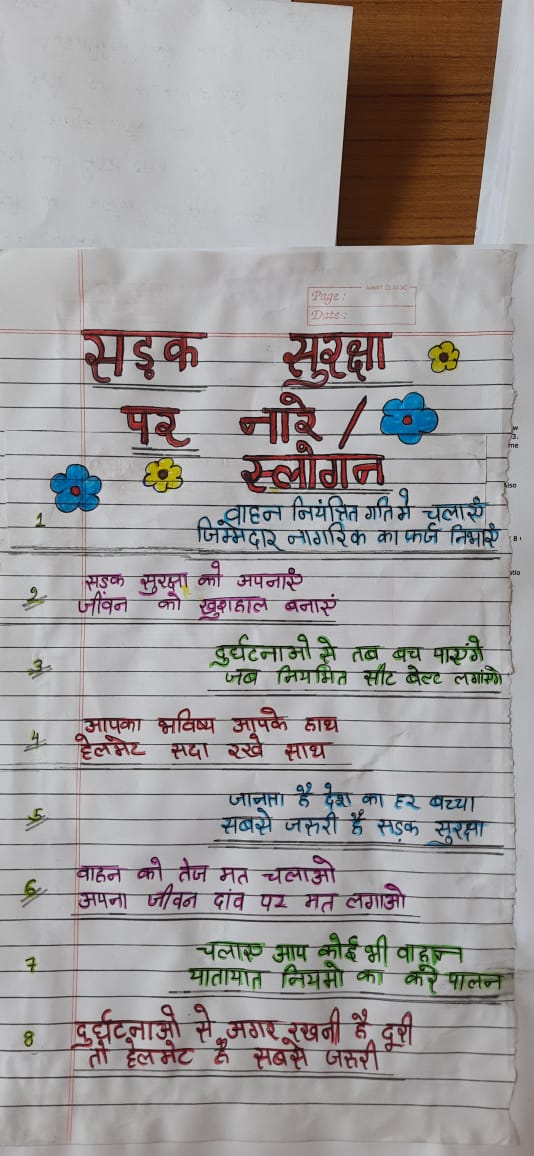 AMRIT CLASSIC
Page :
Date :
सड़क सुरक्षा
पर नारे /
स्लोगन
1 वाहन नियंत्रित गति मे चलाएं
जिम्मेदार नागरिक का फर्ज निभाएं
2 सड़क सुरक्षा को अपनाएं
जीवन को खुशहाल बनाएं
3 दुर्घटनाओ से तब बच पाएंगे
जब नियमित सीट बेल्ट लगाएंगे
4 आपका भविष्य आपके हाथ
हेलमेट सदा रखे साथ
5 जानता है देश का हर बच्चा
सबसे जरूरी है सड़क सुरक्षा
6 वाहन को तेज मत चलाओ
अपना जीवन दांव पर मत लगाओ
7 चलाए आप कोई भी वाहन
यातायात नियमो का करे पालन
8 दुर्घटनाओ से अगर रखनी है दूरी
तो हेलमेट है सबसे जरूरी